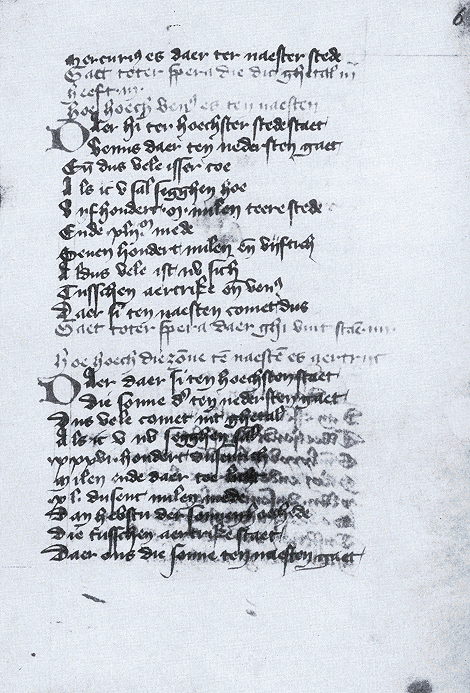 Mercurius es daer ter naester stede
Gaet toter spera die dit ghetal in
heeft .iii.
hoe hoech venus es ten naesten
Daer hi ter hoechster stede staet
Venus daer ten nedersten gaet
Eñ dus vele isser toe
Als ic v sal segghen hoe
Vijfhondert milen teere stede
Ende mede
Seuen hondert milen eñ vijftich
Aldus vele ist nv sich
Tusschen aertrike eñ venus
Daer si ten naesten comet dus
Gaet toter spera daer ghi vint staen
hoe hoech die zonne ten naesten es
Daer daer si ten hoechsten staet
Die sonne ten nedersten gaet
Dus vele comet int ghetal
Als ic v nv segghen sal
hondert dusentich
Milen ende daer toe
xl. dusent milen mede
Dan hebstu der sonnen
Die tusschen aertrike staet
Daer ons die sonne ten naesten gaet